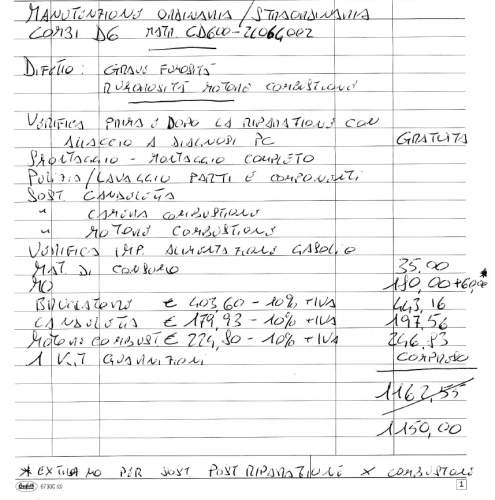 MANUTENZIONE ORDINARIA/STRAORDINARIA
COMBI D6 MATR. CD600-21064002
DIFETTO: GRAVE FUMOSITÀ
RUMOROSITÀ MOTORE COMBUSTIONE
VERIFICA PRIMA E DOPO LA RIPARAZIONE CON
ALLACCIO A DIAGNOSI PC GRATUITA
SMONTAGGIO - MONTAGGIO COMPLETO
PULIZIA/LAVAGGIO PARTI E COMPONENTI
SOST. CANDELETTA
" CAMERA COMBUSTIONE
" MOTORE COMBUSTIONE
VERIFICA IMP. ALIMENTAZIONE GASOLIO
MAT. DI CONSUMO 35,00
MO 180,00+60,00*
BRUCIATORE € 403,60 - 10% + IVA 443,16
CANDELETTA € 179,93 - 10% + IVA 197,56
MOTORE COMBUST € 224,80 - 10% + IVA 246,83
1 KIT GUARNIZIONI COMPRESO
1162,55
1150,00
* EXTRA MO PER SOST. POST RIPARAZIONE X COMBUSTIONE
6730C 00 1